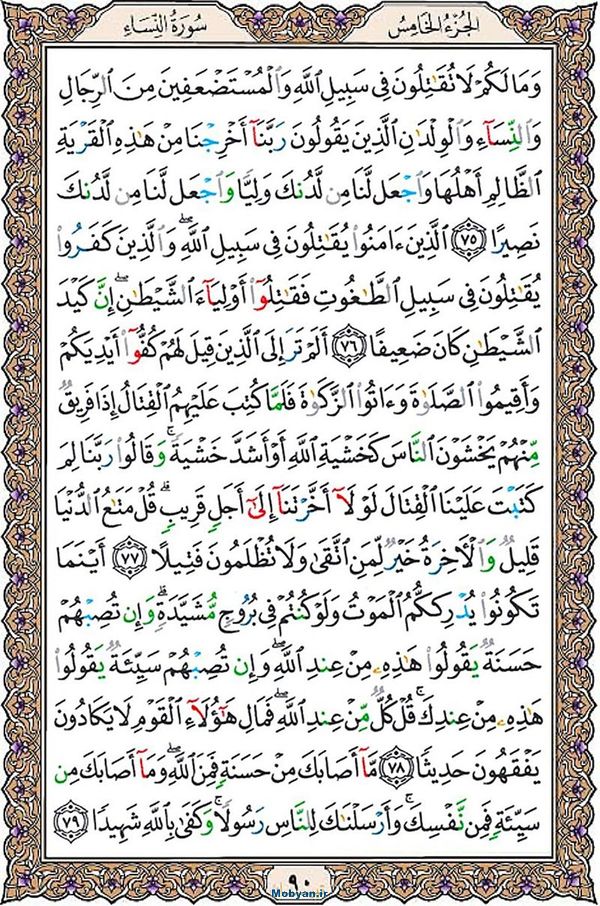 الجُزْءُ الخَامِسُ
سُورَةُ النِّسَاءِ
وَمَا لَكُمْ لَا تُقَٰتِلُونَ فِي سَبِيلِ اللَّهِ وَالْمُسْتَضْعَفِينَ مِنَ الرِّجَالِ
وَالنِّسَآءِ وَالْوِلْدَٰنِ الَّذِينَ يَقُولُونَ رَبَّنَآ أَخْرِجْنَا مِنْ هَٰذِهِ الْقَرْيَةِ
الظَّالِمِ أَهْلُهَا وَاجْعَل لَّنَا مِن لَّدُنكَ وَلِيًّا وَاجْعَل لَّنَا مِن لَّدُنكَ
نَصِيرًا ٧٥ الَّذِينَ ءَامَنُوا يُقَٰتِلُونَ فِي سَبِيلِ اللَّهِ ۖ وَالَّذِينَ كَفَرُوا
يُقَٰتِلُونَ فِي سَبِيلِ الطَّٰغُوتِ فَقَٰتِلُوٓا أَوْلِيَآءَ الشَّيْطَٰنِ ۖ إِنَّ كَيْدَ
الشَّيْطَٰنِ كَانَ ضَعِيفًا ٧٦ أَلَمْ تَرَ إِلَى الَّذِينَ قِيلَ لَهُمْ كُفُّوٓا أَيْدِيَكُمْ
وَأَقِيمُوا الصَّلَوٰةَ وَءَاتُوا الزَّكَوٰةَ فَلَمَّا كُتِبَ عَلَيْهِمُ الْقِتَالُ إِذَا فَرِيقٌ
مِّنْهُمْ يَخْشَوْنَ النَّاسَ كَخَشْيَةِ اللَّهِ أَوْ أَشَدَّ خَشْيَةً ۚ وَقَالُوا رَبَّنَا لِمَ
كَتَبْتَ عَلَيْنَا الْقِتَالَ لَوْلَآ أَخَّرْتَنَآ إِلَىٰٓ أَجَلٍ قَرِيبٍ ۗ قُلْ مَتَٰعُ الدُّنْيَا
قَلِيلٌ وَالْآخِرَةُ خَيْرٌ لِّمَنِ اتَّقَىٰ وَلَا تُظْلَمُونَ فَتِيلًا ٧٧ أَيْنَمَا
تَكُونُوا يُدْرِككُّمُ الْمَوْتُ وَلَوْ كُنتُمْ فِي بُرُوجٍ مُّشَيَّدَةٍ ۗ وَإِن تُصِبْهُمْ
حَسَنَةٌ يَقُولُوا هَٰذِهِ مِنْ عِندِ اللَّهِ ۖ وَإِن تُصِبْهُمْ سَيِّئَةٌ يَقُولُوا
هَٰذِهِ مِنْ عِندِكَ ۚ قُلْ كُلٌّ مِّنْ عِندِ اللَّهِ ۖ فَمَالِ هَٰٓؤُلَآءِ الْقَوْمِ لَا يَكَادُونَ
يَفْقَهُونَ حَدِيثًا ٧٨ مَّآ أَصَابَكَ مِنْ حَسَنَةٍ فَمِنَ اللَّهِ ۖ وَمَآ أَصَابَكَ مِن
سَيِّئَةٍ فَمِن نَّفْسِكَ ۚ وَأَرْسَلْنَٰكَ لِلنَّاسِ رَسُولًا ۚ وَكَفَىٰ بِاللَّهِ شَهِيدًا ٧٩
٩٠
Mobyan.ir